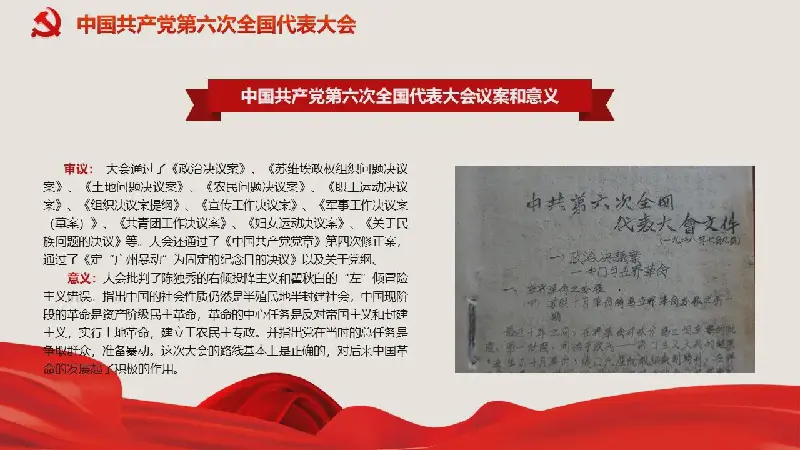 中国共产党第六次全国代表大会
中国共产党第六次全国代表大会议案和意义
审议： 大会通过了《政治决议案》、《苏维埃政权组织问题决议
案》、《土地问题决议案》、《农民问题决议案》、《职工运动决议
案》、《组织决议案提纲》、《宣传工作决议案》、《军事工作决议案
（草案）》、《共青团工作决议案》、《妇女运动决议案》、《关于民
族问题的决议》等。大会还通过了《中国共产党党章》第四次修正案，
通过了《定“广州暴动”为固定的纪念日的决议》以及关于党纲。
意义：大会批判了陈独秀的右倾投降主义和瞿秋白的“左”倾冒险
主义错误。指出中国的社会性质仍然是半殖民地半封建社会，中国现阶
段的革命是资产阶级民主革命，革命的中心任务是反对帝国主义和封建
主义，实行土地革命，建立工农民主专政。并指出党在当时的总任务是
争取群众，准备暴动。这次大会的路线基本上是正确的，对后来中国革
命的发展起了积极的作用。
中共第六次全国
代表大會文件
一、政治决議案